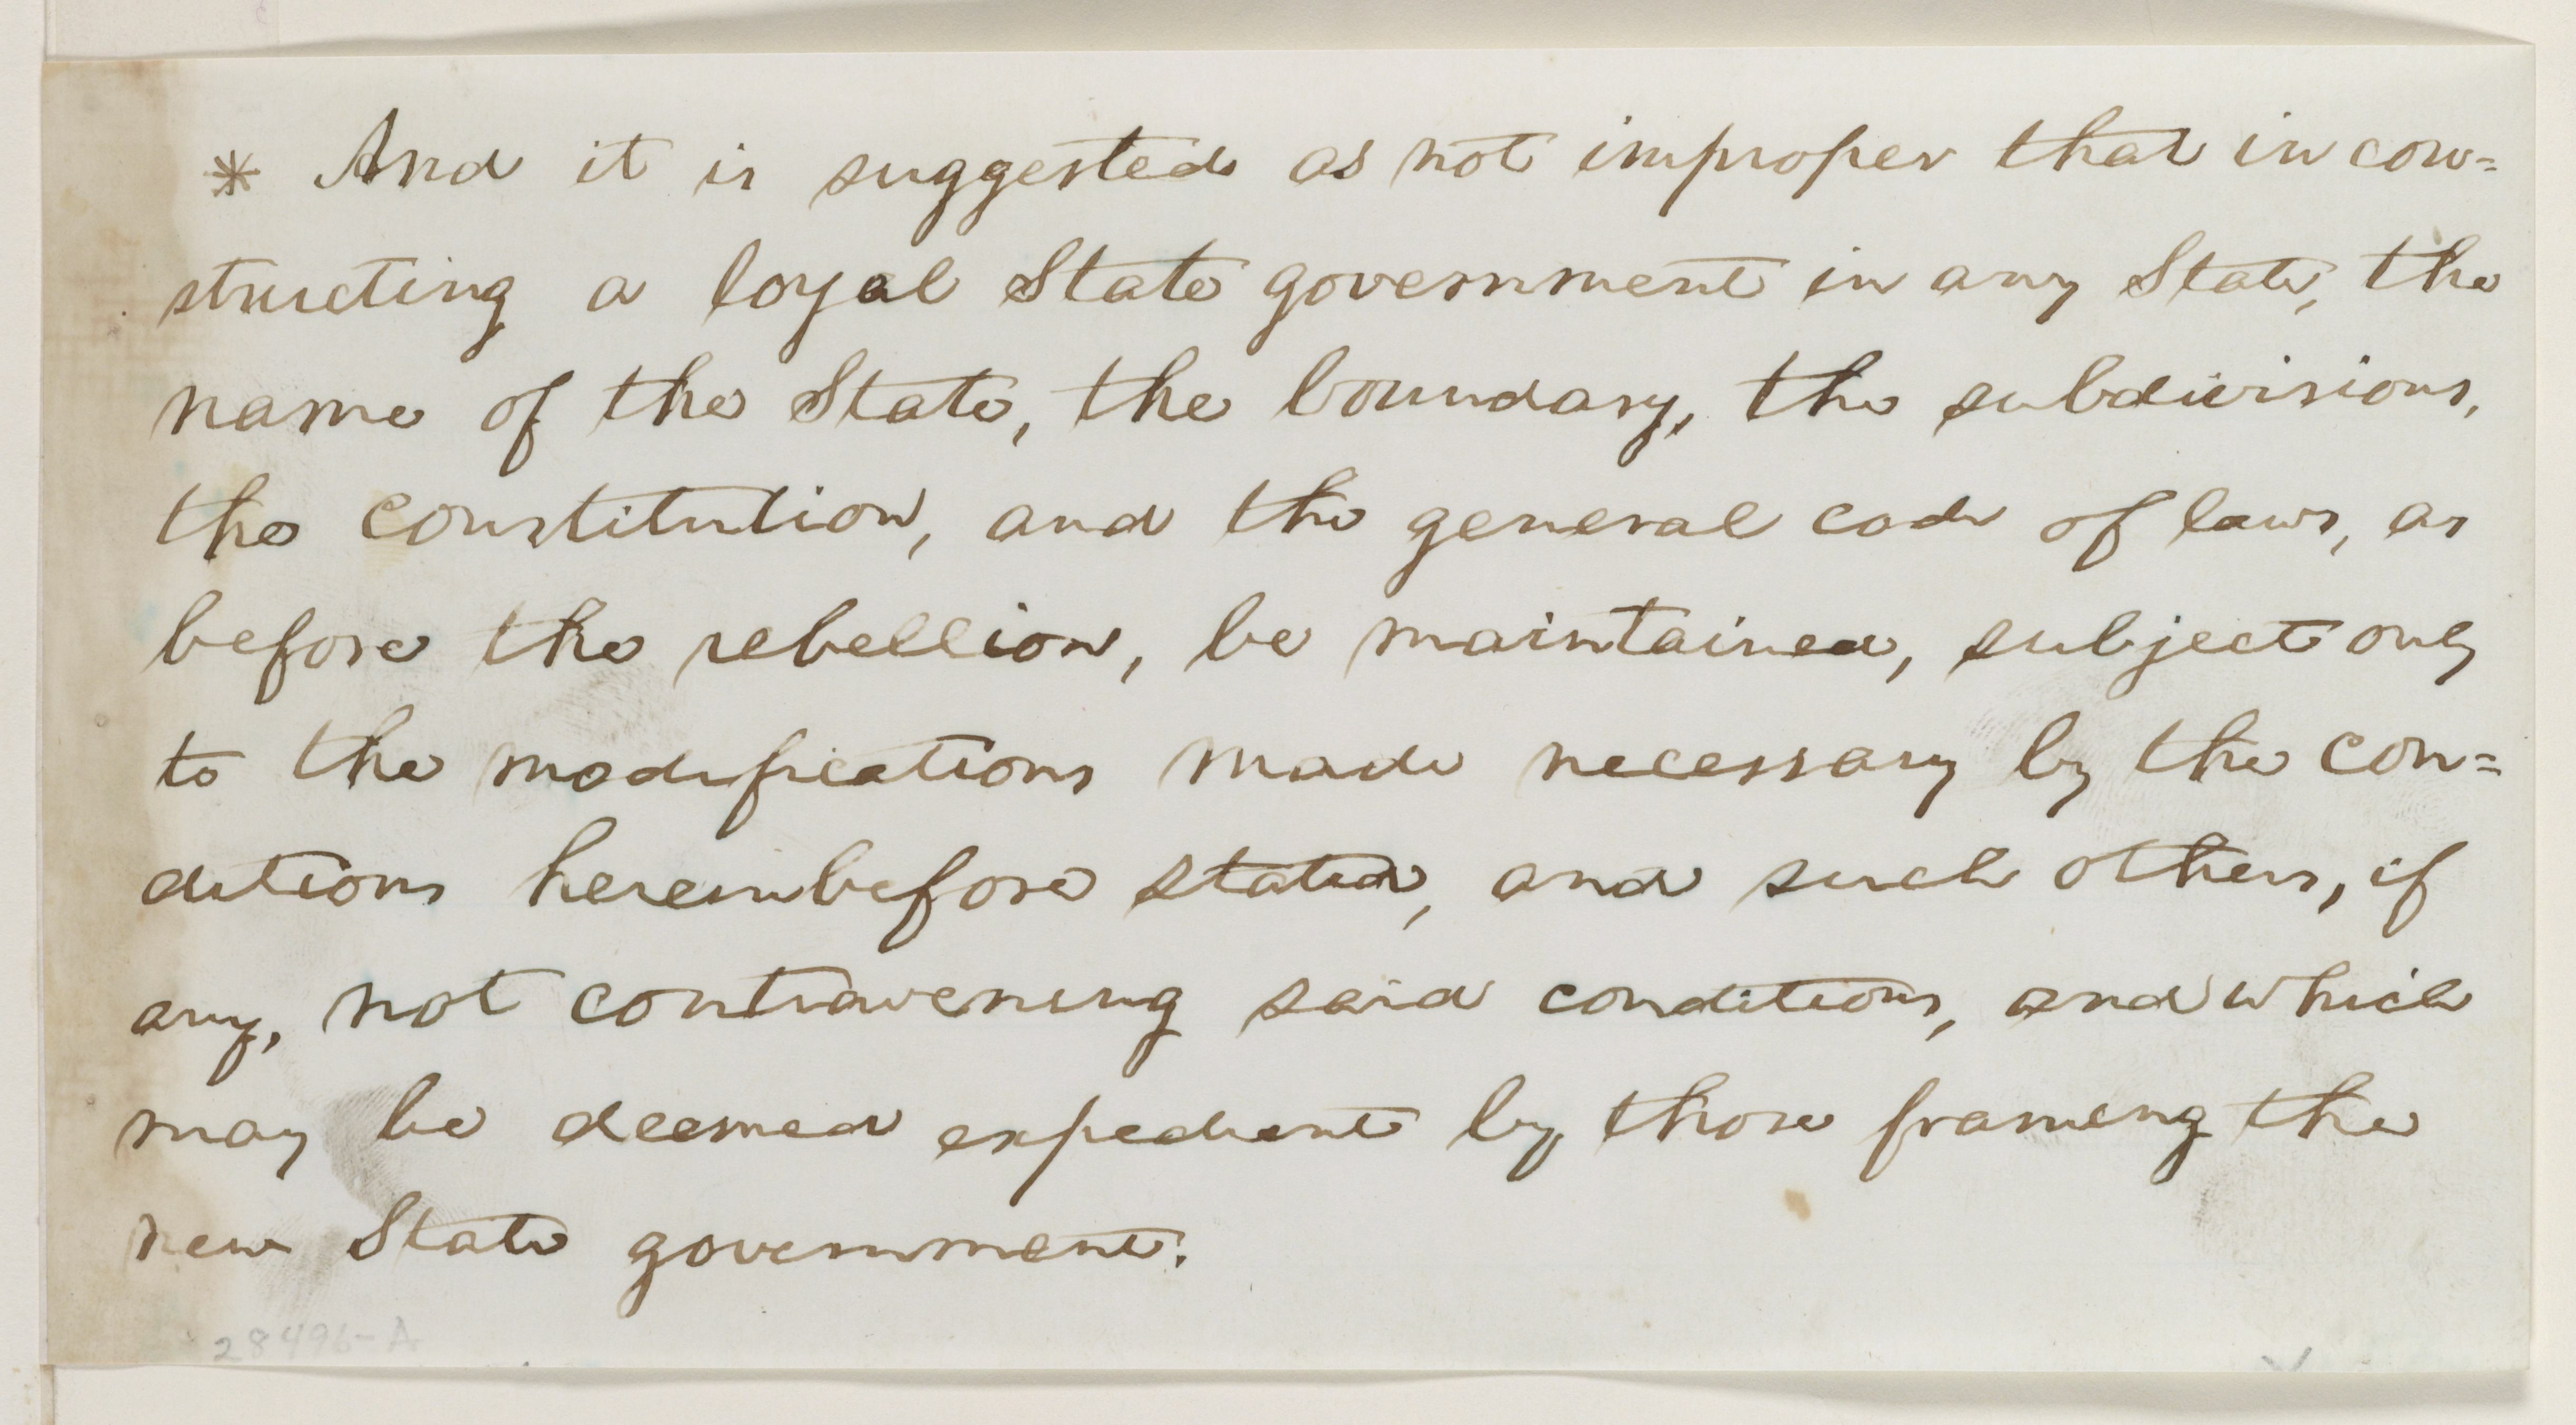 * And it is suggested as not improper that in con=
structing a loyal State government in any State, the
name of the State, the boundary, the subdivisions,
the constitution, and the general code of laws, as
before the rebellion, be maintained, subject only
to the modifications made necessary by the con=
ditions hereinbefore stated, and such others, if
any, not contravening said conditions, and which
may be deemed expedient by those framing the
new State government.
28496-A